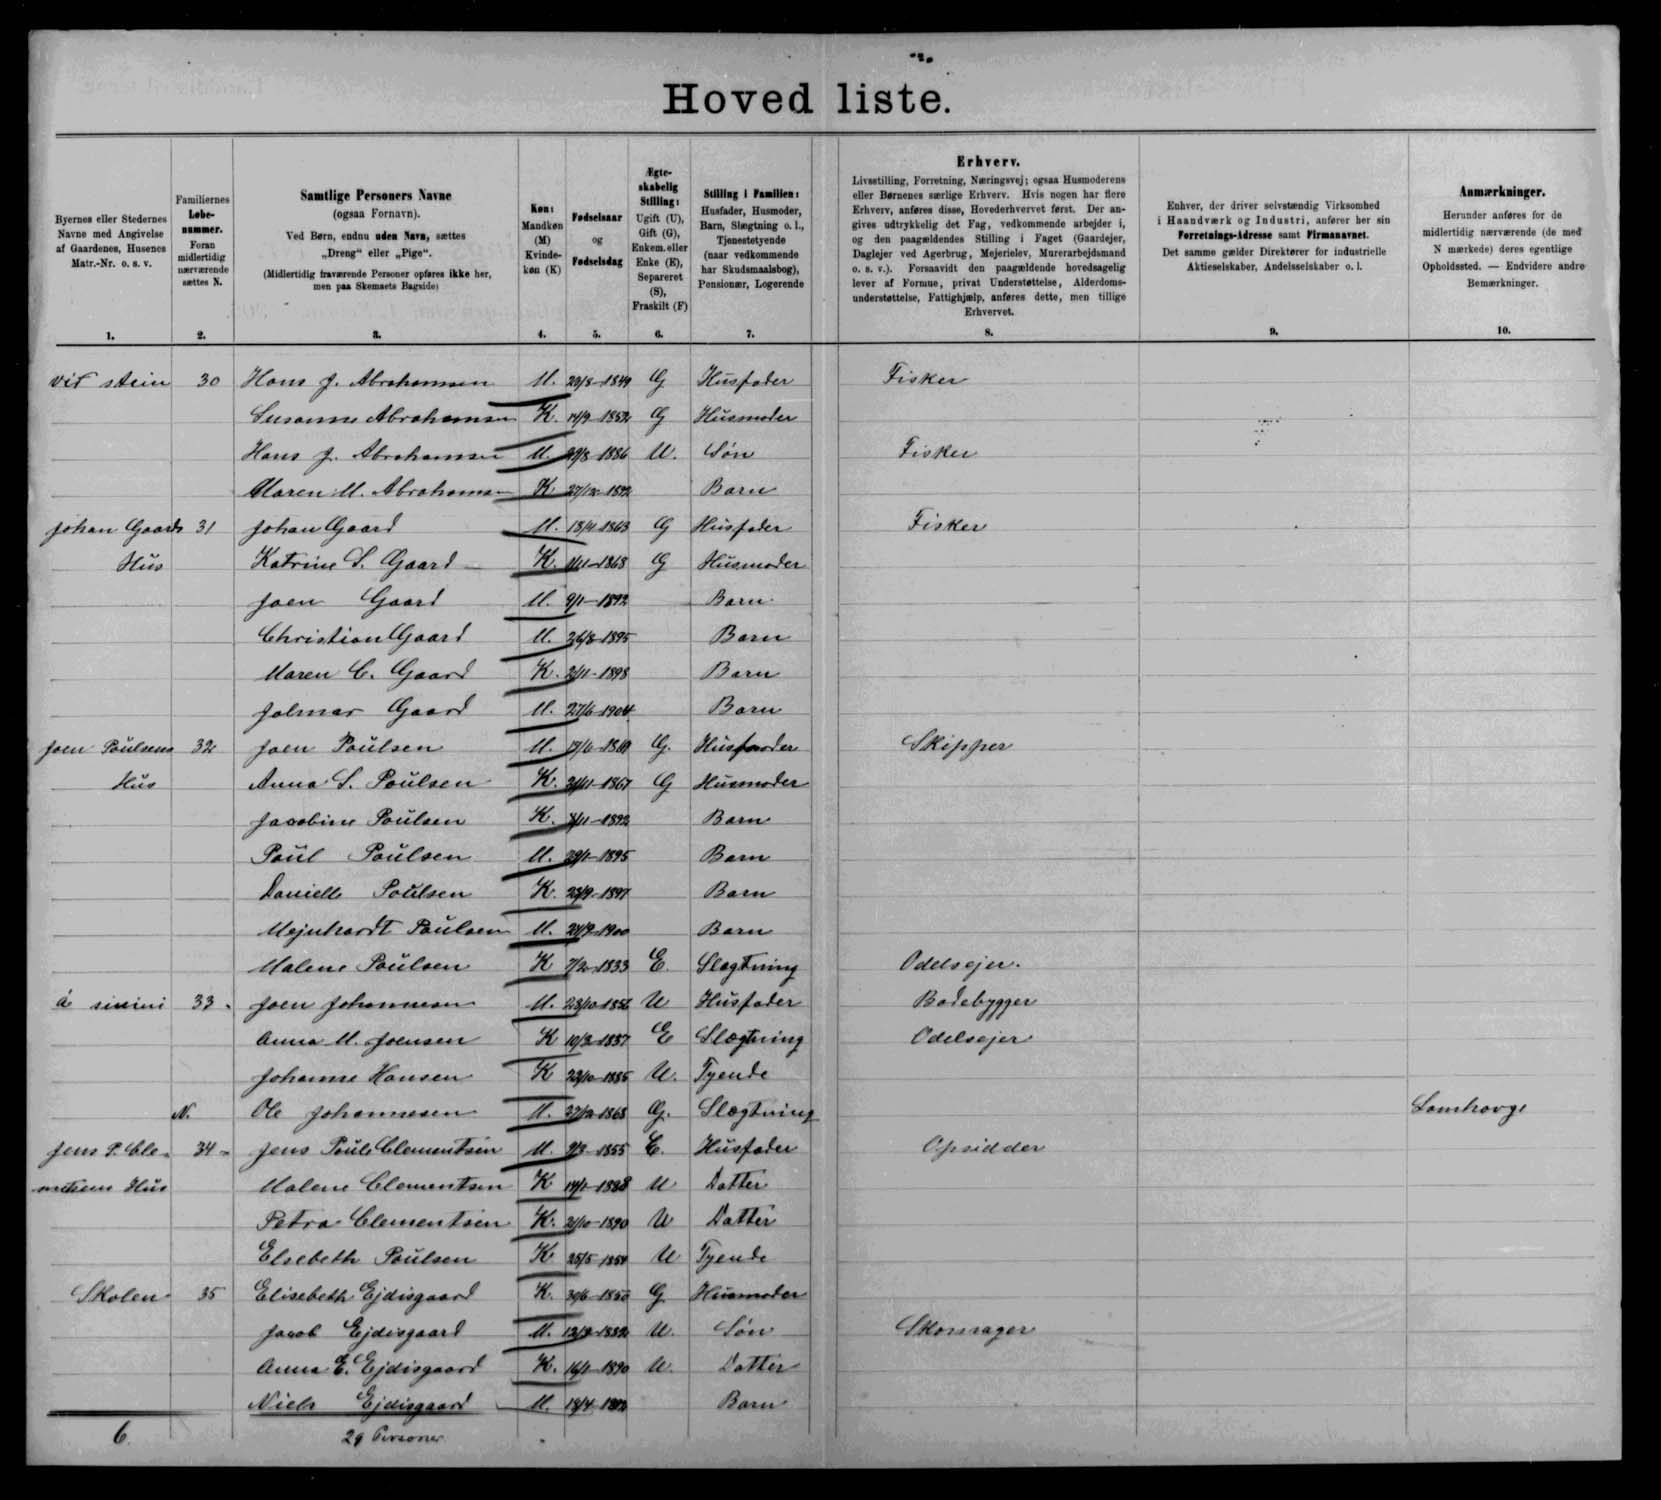 Hoved liste.
Byernes eller Stedernes Navne med Angivelse af Gaardenes, Husenes Matr.-Nr. o. s. v.
Familiernes Løbe-nummer. Foran midlertidig nærværende sættes N.
Samtlige Personers Navne
(ogsaa Fornavn).
Ved Børn, endnu uden Navn, sættes
„Dreng“ eller „Pige“.
(Midlertidig fraværende Personer opføres ikke her,
men paa Skemaets Bagside)
Køn: Mandkøn (M) Kvinde-køn (K)
Fødselsaar og Fødselsdag
Ægte-skabelig Stilling: Ugift (U), Gift (G), Enkem. eller Enke (E), Separeret (S), Fraskilt (F)
Stilling i Familien: Husfader, Husmoder, Barn, Slægtning o. l., Tjenestetyende (naar vedkommende har Skudsmaalsbog), Pensionær, Logerende
Erhverv.
Livsstilling, Forretning, Næringsvej; ogsaa Husmoderens
eller Børnenes særlige Erhverv. Hvis nogen har flere
Erhverv, anføres disse, Hovederhvervet først. Der an-
gives udtrykkelig det Fag, vedkommende arbejder i,
og den paagældendes Stilling i Faget (Gaardejer,
Daglejer ved Agerbrug, Mejerielev, Murerarbejdsmand
o. s. v.). Forsaavidt den paagældende hovedsagelig
lever af Formue, privat Understøttelse, Alderdoms-
understøttelse, Fattighjælp, anføres dette, men tillige
Erhvervet.
Enhver, der driver selvstændig Virksomhed
i Haandværk og Industri, anfører her sin
Forretnings-Adresse samt Firmanavnet.
Det samme gælder Direktører for industrielle
Aktieselskaber, Andelsselskaber o. l.
Anmærkninger.
Herunder anføres for de
midlertidig nærværende (de med
N mærkede) deres egentlige
Opholdssted. — Endvidere andre
Bemærkninger.
1. 2. 3. 4. 5. 6. 7. 8. 9. 10.
við stein 30 Hans J. Abrahamsen M. 1849 G Husfader Fisker
Susanne Abrahamsen K. 1852 G Husmoder
Hans J. Abrahamsen M. 1886 U. Søn Fisker
Maren M. Abrahamsen K 27/12 1892 Barn
Johan Gaards 31 Johan Gaard M. 1863 G Husfader Fisker
Hus Katrine S. Gaard K. 1868 G Husmoder
Joen Gaard M. 9/1-1892 Barn
Christian Gaard M. 26/8-1895 Barn
Maren C. Gaard K. 1898 Barn
Jalmar Gaard M. 27/6-1904 Barn
Joen Poulsens 32 Joen Poulsen M. G. Husfader Skipper
Hus Anna S. Poulsen K. 1867 G Husmoder
Jacobine Poulsen K. 1892 Barn
Poul Poulsen M. 29/1-1895 Barn
Danielle Poulsen K. 1897 Barn
Mejnhardt Poulsen M. 1900 Barn
Malene Poulsen K 1833 E. Slægtning Odelsejer.
33 Joen Johannesen M. U Husfader Baadebygger
Anna M. Joensen K 1837 E Slægtning Odelsejer
Johanne Hansen K 1885 U. Tyende
N. Ole Johannesen M. 1868 G. Slægtning
Jens P. Cle- 34 Jens Poule Clementsen M. 1855 E. Husfader Opsidder
mentsens Hus Malene Clementsen K U Datter
Petra Clementsen K. 1890 U Datter
Elsebeth Poulsen K 25/5-1854 U Tyende
Skolen 35 Elisebeth Ejdisgaard K. G Husmoder
Jacob Ejdisgaard M. 1882 U. Søn Skomager
Anna E. Ejdisgaard K. 16/1-1890 U. Datter
Niels Ejdisgaard M. 18/4 Barn
6. 29 Personer